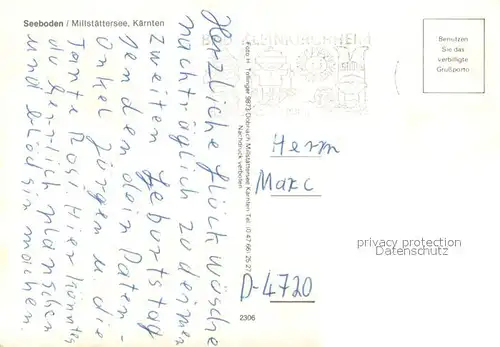 Seeboden / Millstättersee, Kärnten
Herzliche Glückwüsche
nachträglich zu deinem
zweiten Geburtstag
senden dein Paten-
onkel Jürgen u. die
Tante Rosi Hier könntest
du herrlich planschen
und blödsin machen.
BAD KLEINKIRCHHEIM
Foto H. Tollinger 9873 Döbriach Millstättersee Kärnten Tel. (0 47 66) 25 27
Nachdruck verboten
2306
Benutzen
Sie das
verbilligte
Grußporto
Herrn
Marc
D-4720
privacy protection
Datenschutz